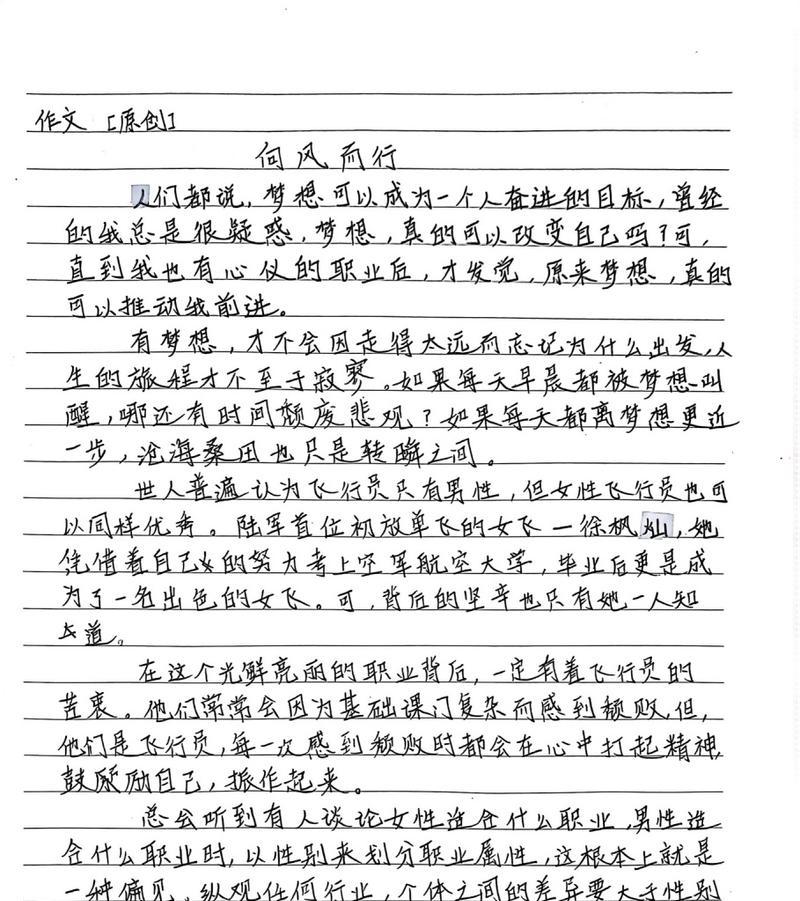 作文 [原创]
向风而行
人们都说，梦想可以成为一个人奋进的目标，曾经
的我总是很疑惑，梦想，真的可以改变自己吗？可，
直到我也有心仪的职业后，才发觉，原来梦想，真的
可以推动我前进。
有梦想，才不会因走得太远而忘记为什么出发，人
生的旅程才不至于寂寥。如果每天早晨都被梦想叫
醒，哪还有时间颓废悲观？如果每天都离梦想更近
一步，沧海桑田也只是转瞬之间。
世人普遍认为飞行员只有男性，但女性飞行员也可
以同样优秀。陆军首位初放单飞的女飞一徐枫灿，她
凭借着自己的努力考上空军航空大学，毕业后更是成
为了一名出色的女飞。可，背后的坚辛也只有她一人知
道。
在这个光鲜亮丽的职业背后，一定有着飞行员的
苦衷。他们常常会因为基础课门复杂而感到颓败，但，
他们是飞行员，每一次感到颓败时都会在心中打起精神，
鼓励自己，振作起来。
总会听到有人谈论女性适合什么职业，男性适
合什么职业时，以性别来划分职业属性，这根本上就是
一种偏见。纵观任何行业，个体之间的差异要大于性别